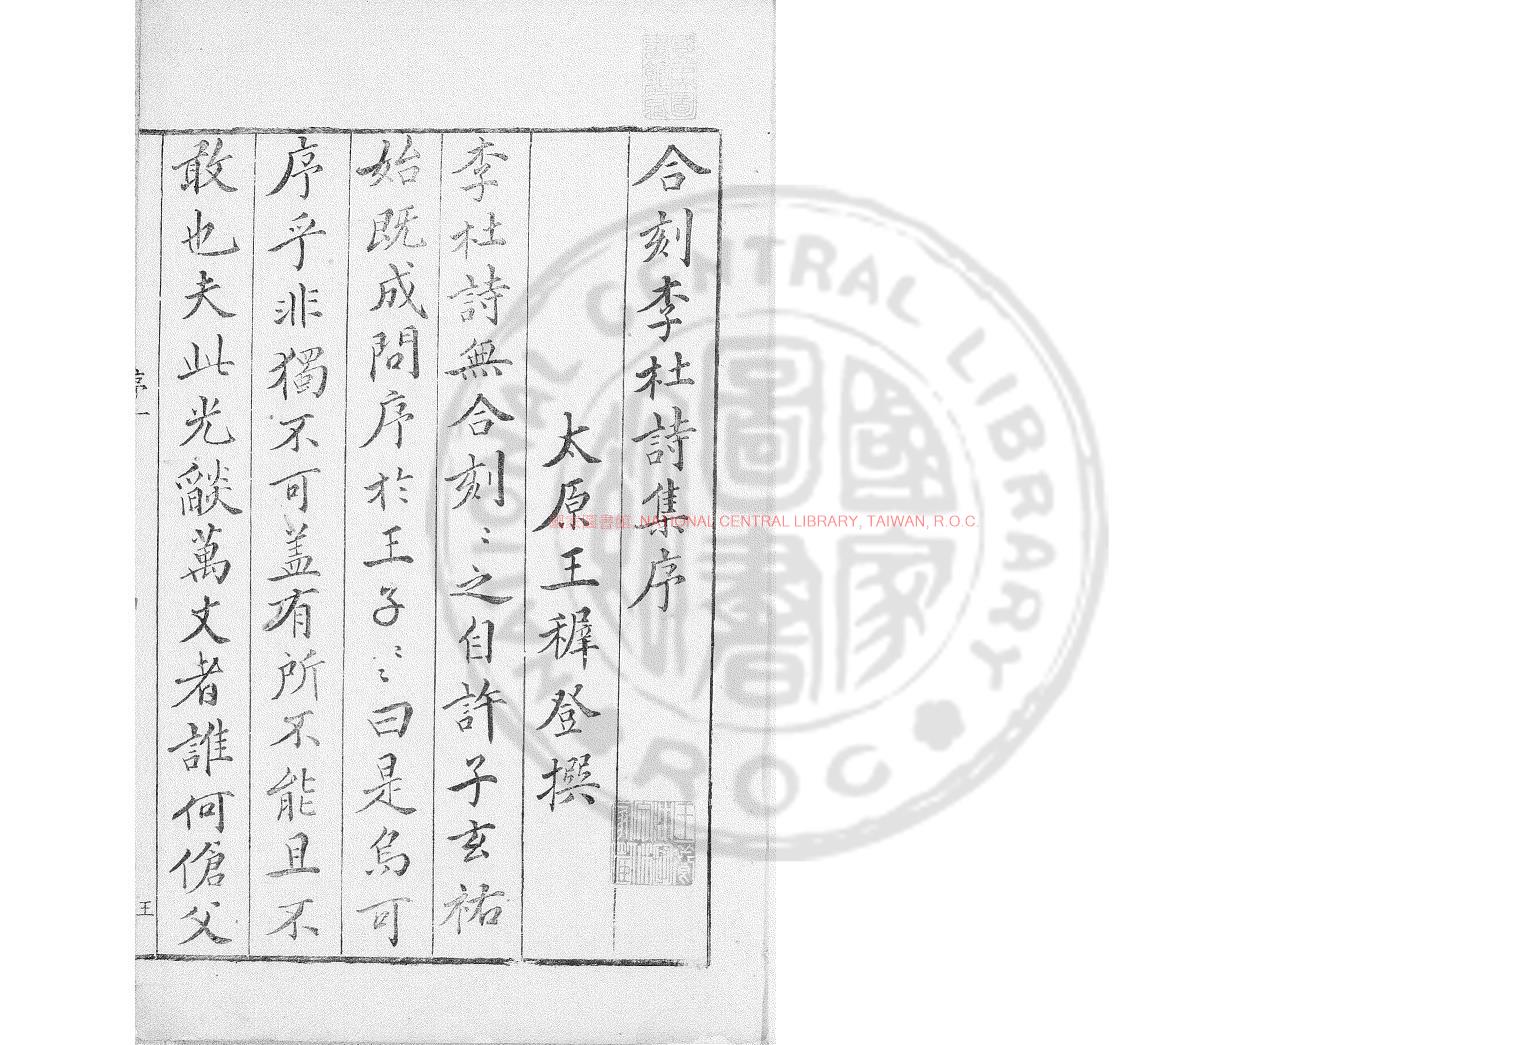 合刻李杜詩集序
太原王穉登撰
李杜詩無合刻〻之自許子玄祐
始既成問序於王子〻〻曰是烏可
序乎非獨不可盖有所不能且不
敢也夫此光燄萬丈者誰何傖父
序一
王
國家圖書館 NATIONAL CENTRAL LIBRARY, TAIWAN, R.O.C.
NATIONAL CENTRAL LIBRARY
R O C
國家圖書